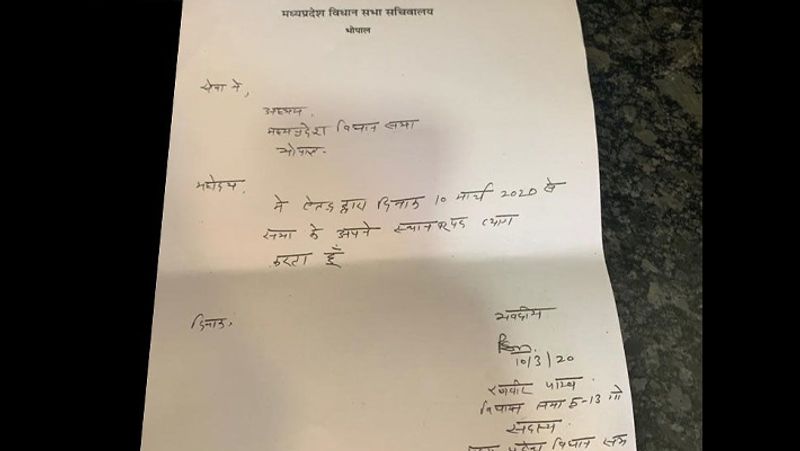 मध्यप्रदेश विधान सभा सचिवालय
भोपाल
सेवा में,
अध्यक्ष.
मध्यप्रदेश विधान सभा
भोपाल.
महोदय.
मैं एतद् द्वारा दिनांक 10 मार्च 2020 से
सभा के अपने स्थान त्याग
करता हूँ
दिनांक,
भवदीय
10/3/20
विधान सभा क्ष-13
सदस्य
मध्य प्रदेश विधान सभा